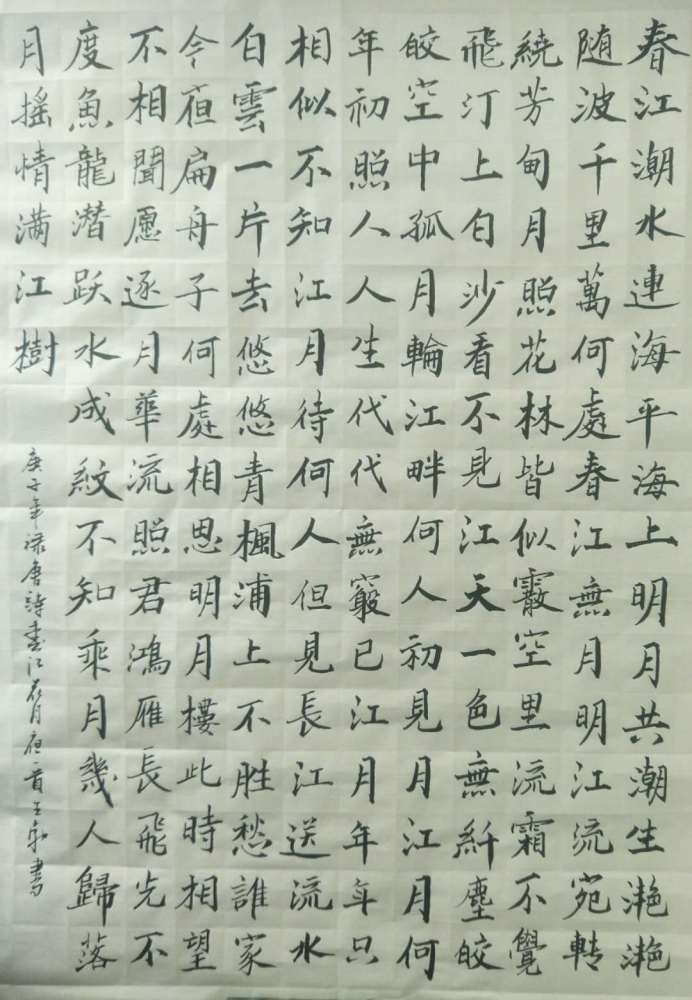 春江潮水連海平海上明月共潮生滟滟
随波千里萬何處春江無月明江流宛轉
繞芳甸月照花林皆似霰空里流霜不覺
飛汀上白沙看不見江天一色無纤塵皎
皎空中孤月輪江畔何人初見月江月何
年初照人人生代代無窮已江月年年只
相似不知江月待何人但見長江送流水
白雲一片去悠悠青楓浦上不胜愁誰家
今夜扁舟子何處相思明月樓此時相望
不相聞愿逐月華流照君鴻雁長飛光不
度魚龍潜跃水成紋不知乘月幾人歸落
月摇情满江樹
庚子年禄唐詩春江花月夜一首王書